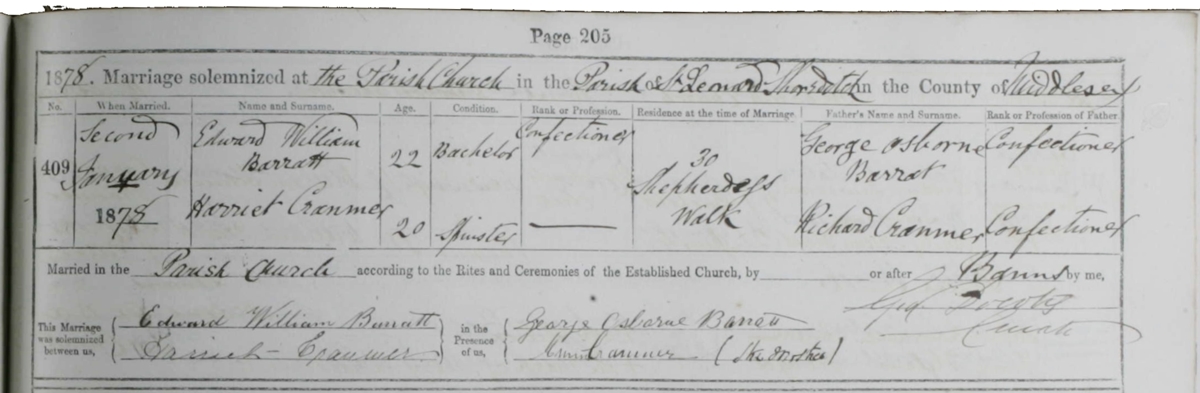 Page 205
1878. Marriage solemnized at the Parish Church in the Parish of St. Leonard Shoreditch in the County of Middlesex
No. When Married. Name and Surname. Age. Condition. Rank or Profession. Residence at the time of Marriage. Father's Name and Surname. Rank or Profession of Father.
409 Second January 1878 Edward William Barratt 22 Bachelor Confectioner 30 Shepherdess Walk George Osborne Barrat Confectioner
Harriet Cranmer 20 Spinster Richard Cranmer Confectioner
Married in the Parish Church according to the Rites and Ceremonies of the Established Church, by or after Banns by me,
Curate
This Marriage was solemnized between us, Edward William Barratt in the Presence of us, George Osborne Barratt
Harriet Cranmer Cranmer (the mother)